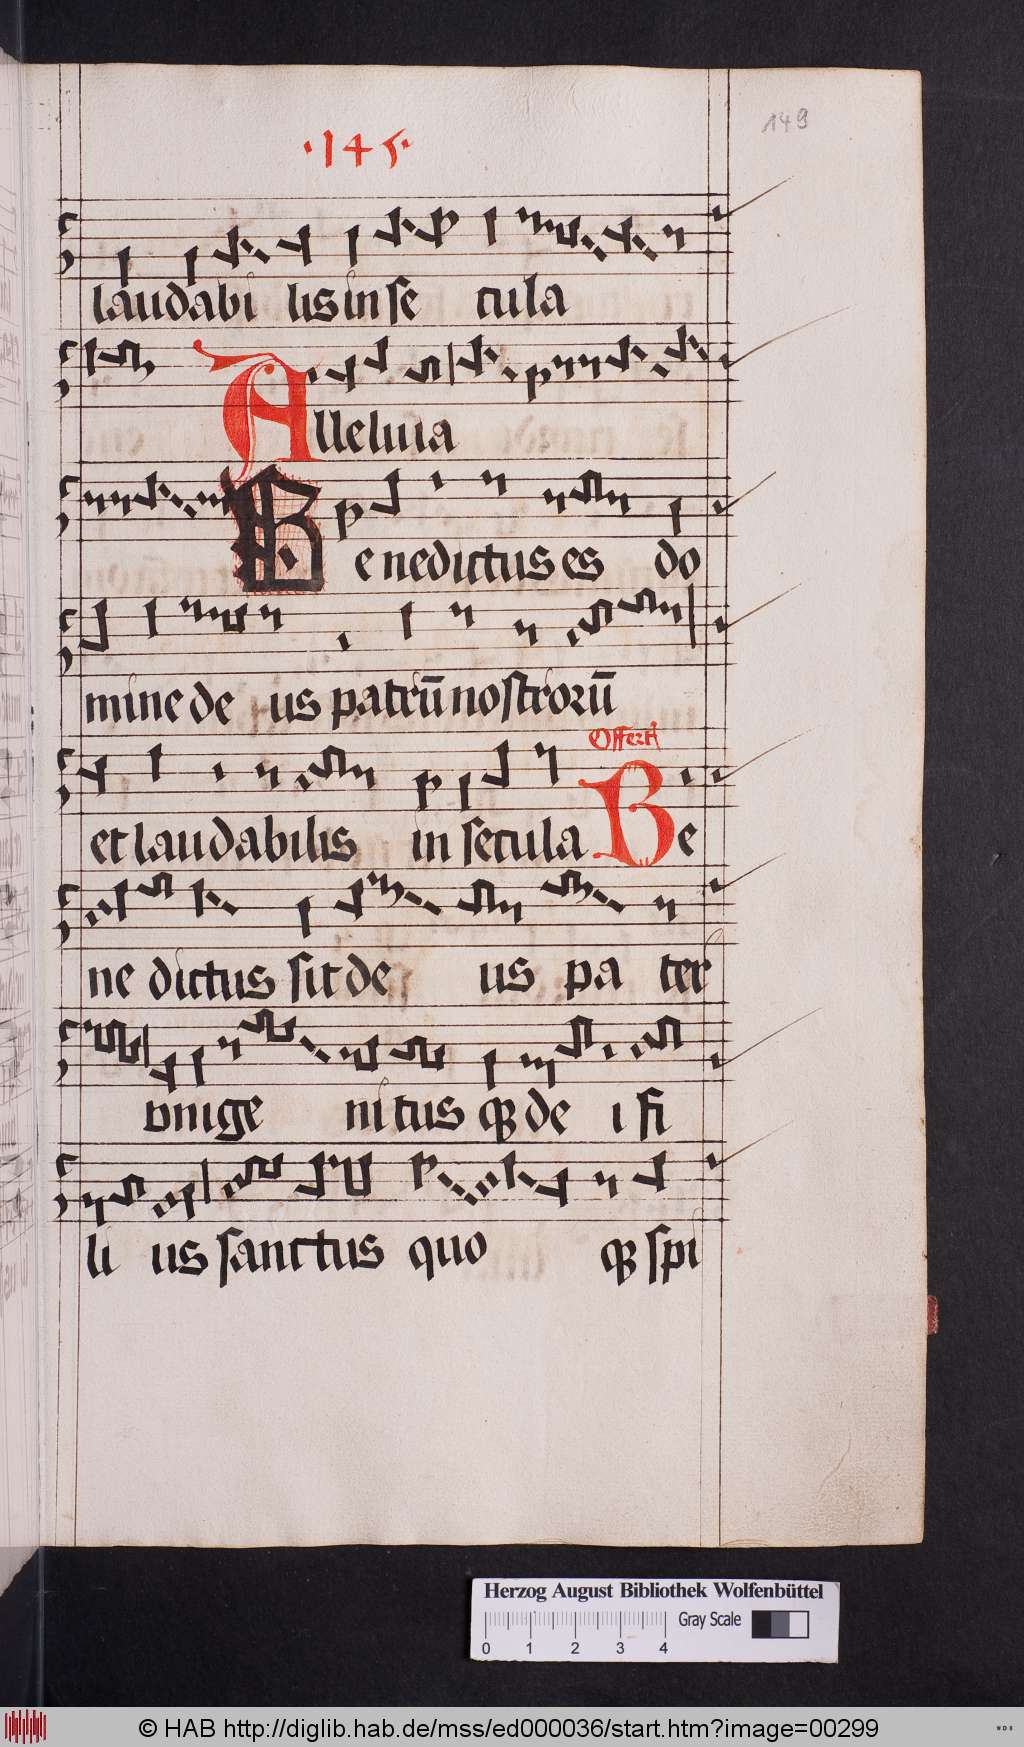 ·145·
149
laudabi lis in se cula
Alleluia
Benedictus es do
mine de us patrū nostrorū
Offertʳ
et laudabilis in secula Be
ne dictus sit de us pa ter
vnige nitus qꝫ de i fi
li us sanctus quo qꝫ spi
Herzog August Bibliothek Wolfenbüttel
Gray Scale
0 1 2 3 4
© HAB http://diglib.hab.de/mss/ed000036/start.htm?image=00299